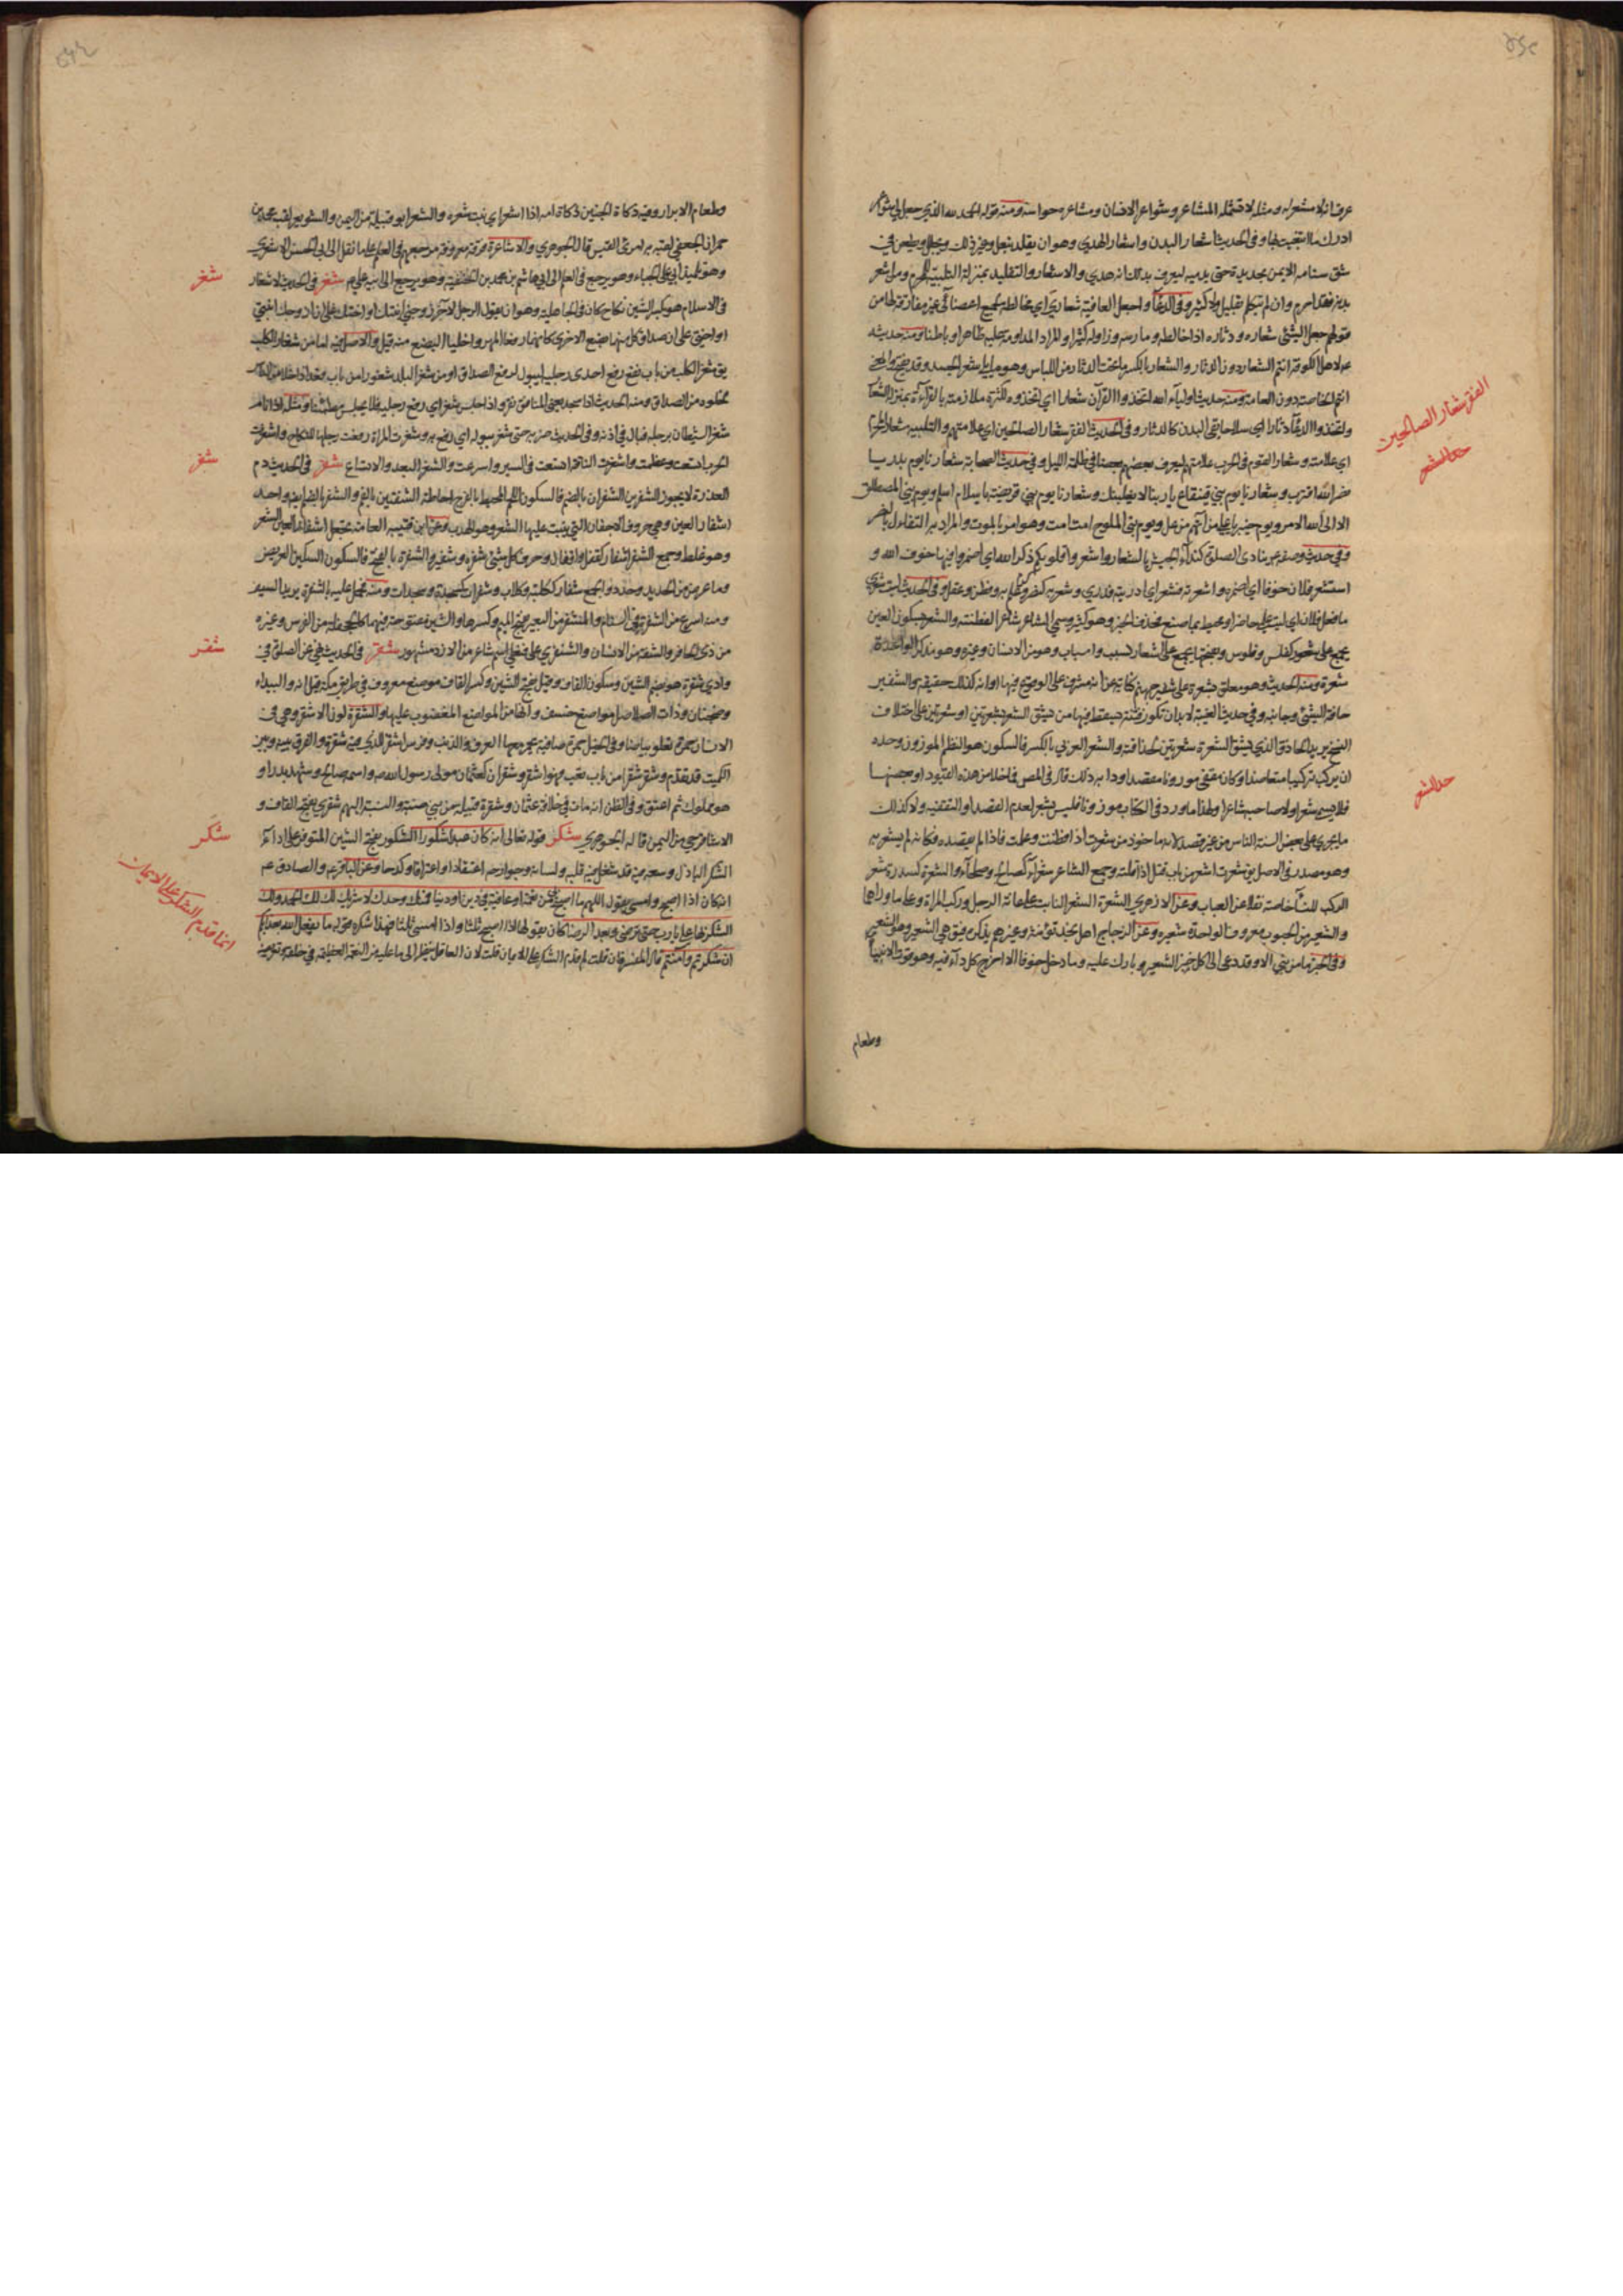 الفقر شعار الصالحين
حد الشعر
حد الشعر
عرفانه لا مشعر له ومثله لا تشمله المشاعر وشواعر الانسان ومشاعره حواسه ومنه قوله الحمد لله الذي جعل لي شواعر
ادرك ما ابتغيت بها وفي الحديث اشعار البدن واشعار الهدي وهو ان يقلد بنعل وغير ذلك ويجلل ويطعن في
شق سنامه الايمن بحديدة حتى يدميه ليعرف بذلك انه هدي والاشعار والتقليد بمنزلة التلبية للمحرم ومن اشعر
بدنه فقد احرم وان لم يتكلم بقليل ولا كثير وفي الدعاء واجعل العافية شعاري اي مخالطة لجميع اعضائي غير مفارقة لها من
قولهم جعل الشيء شعاره ودثاره اذا خالطه ومارسه وزاوله كثيرا والمراد المداومة عليه ظاهرا وباطنا ومنه حديثه
ع لاهل الكوفة انتم الشعار دون الدثار والشعار بالكسر ما تحت الدثار من اللباس وهو ما يلي شعر الجسد وقد يفتح والمعنى
انتم الخاصة دون العامة ومنه حديث اولياء الله اتخذوا القرآن شعارا اي اتخذوه لكثرة ملازمته بالقراءة بمنزلة الشعار
واتخذوا الدعاء دثارا اي سلاحا يقي البدن كالدثار وفي الحديث الفقر شعار الصالحين اي علامتهم والتلبية شعار المحرم
اي علامته وشعار القوم في الحرب علامتهم ليعرف بعضهم بعضا في ظلمة الليل وفي حديث الصحابة شعارنا يوم بدر يا
نصر الله اقترب وشعارنا يوم بني قينقاع يا ربنا لا يغلبنك وشعارنا يوم بني قريضة يا سلام اسلم ويوم بني المصطلق
الا الى الله الامر ويوم خيبر يا علي من ائتهم من عل ويوم بني الملوح امت امت وهو امر بالموت والمراد به التفاءل بالنصر
استشعر فلان خوفا اي اضمره واشعرته فشعر اي ادريته فدرى وشعر به كنصر وكرم علم به وفطن وعقله وفي الحديث ليت شعري
ما فعل فلان اي ليت علمي حاضر او محيط بما صنع فحذف الخبر وهو كثير وسمي الشاعر شاعرا لفطنته والشعر بسكون العين
يجمع على شعور كفلس وفلوس وبفتحها يجمع على اشعار كسبب واسباب وهو من الانسان وغيره وهو مذكر الواحدة
شعرة ومنه الحديث وهو معلق بشعرة على شفير جهنم كناية عن انه مشرف على الوقوع فيها او انه كذلك حقيقة والشفير
حافة الشيء وجانبه وفي حديث الغيبة لا بد ان تكون فتنة يسقط فيها من يشق الشعر بشعرتين او شعرتين على اختلاف
النسخ يريد الحاذق الذي يشق الشعرة شعرتين لحذاقته والشعر العربي بالكسر فالسكون هو النظم الموزون وحده
ان يركب تركيبا متعاضدا وكان مقفى موزونا مقصدا به ذلك قال في المص فما خلا من هذه القيود او بعضها
فلا يسمى شعرا ولا صاحبه شاعرا ولهذا ما ورد في الكتاب موزونا فليس بشعر لعدم القصد او التقفية وكذلك
ما يجري على بعض السنة الناس من غير قصد لانه ماخوذ من شعرت اذا فطنت وعلمت فاذا لم يقصده فكانه لم يشعر به
وهو مصدر في الاصل يق شعرت اشعر من باب قتل اذا قلته وجمع الشاعر شعراء كصالح وصلحاء والشعرة كسدرة شعر
الركب للنساء خاصة نقلا عن العباب وعن الازهري الشعرة الشعر النابت على عانة الرجل وركب المراة وعلى ما وراها
والشعير من الحبوب معروف الواحدة شعيرة وعن الزجاج اهل نجد تؤنثه وغيرهم يذكره فيق هي الشعير وهو الشعير
وفي الخبر ما من نبي الا وقد دعى الى اكل خبز الشعير وبارك عليه وما دخل جوفا الا اخرج كل داء فيه وهو قوت الانبياء
وطعام
شغر
شفر
شقر
شكر
انما قدم الشكر على الايمان
وطعام الابرار وفيه ذكاة الجنين ذكاة امه اذا اشعر اي نبت شعره والشعر ابو قبيلة من اليمن والشويعر لقب محمد بن
حمران الجعفي لقبه به امرئ القيس قال الجوهري والاشاعرة فرقة معروفة مرجعهم في العلم على ما نقل الى ابي الحسن الاشعري
وهو تلميذ ابي علي الجباء وهو يرجع في العلم الى ابي هاشم بن محمد بن الحنفية وهو يرجع الى ابيه علي ع م شغر في الحديث لا شغار
في الاسلام هو بكسر الشين نكاح كان في الجاهلية وهو ان يقول الرجل لآخر زوجني ابنتك او اختك على ان ازوجك ابنتي
او اختي على ان صداق كل منهما بضع الاخرى كانهما رفعا المهر واخليا البضع منه قيل والاصل فيه اما من شغار الكلب
يق شغر الكلب من باب نفع رفع احدى رجليه ليبول لرفع الصداق او من شغر البلد شغورا من باب قعد اذا خلا من الناس
لخلوه من الصداق ومنه الحديث اذا سجد يعني المنافق نقر واذا جلس شغر اي رفع رجليه فلا يجلس مطمئنا ومثله اذا نام
شغر الشيطان برجله فبال في اذنه وفي الحديث ضربه حتى شغر ببوله اي رفع به وشغرت المراة رفعت رجلها للنكاح واشغرت
الحرب اتسعت وعظمت واشغرت الناقة اتسعت في السير واسرعت والشغر البعد والاتساع شفر في الحديث دم
العذرة لا يجوز الشفرين الشفران بالضم فالسكون اللحم المحيط بالفرج احاطة الشفتين بالفم والشفر بالضم ايضا واحد
اشفار العين وهي حروف الاجفان التي ينبت عليها الشعر وهو الهدب وعن ابن قتيبة العامة تجعل اشفار العين الشعر
وهو غلط وجمع الشفر اشفار كقفل واقفال وحرف كل شيء شفره وشفيره والشفرة بالفتح فالسكون السكين العريض
وما عرض من الحديد وحدد والجمع شفار ككلبة وكلاب وشفرات كسجدة وسجدات ومنه فحمل عليه بالشفرة يريد السيف
من ذي الحافر والشفة من الانسان والشنفري على فنعلى اسم شاعر من الازد مشهور شقر في الحديث نهي عن الصلوة في
وادي شقرة هو بضم الشين وسكون القاف وقيل بفتح الشين وكسر القاف موضع معروف في طريق مكة قيل انه والبيداء
وضجنان وذات الصلاصل مواضع خسف وانها من المواضع المغضوب عليها والشقرة لون الاشقر وهي في
الانسان حمرة تعلو بياضا وفي الخيل حمرة صافية يحمر معها العرف والذنب وفرس اشقر الذي فيه شقرة والفرق بينه وبين
الكميت قد تقدم وشقر شقرا من باب تعب فهو اشقر وشقران كعثمان مولى رسول الله ص واسمه صالح وشهد بدرا و
هو مملوك ثم اعتق وفي الظن انه مات في خلافة عثمان وشقرة قبيلة من بني ضبة والنسبة اليهم شقري بفتح القاف و
الاشاقر حي من اليمن قاله الجوهري شكر قوله تعالى انه كان عبدا شكورا الشكور بفتح الشين المتوفر على اداء
الشكر الباذل وسعه فيه قد شغل فيه قلبه ولسانه وجوارحه اعتقادا واعترافا وكدحا وعن الباقر ع والصادق ع م
انه كان اذا اصبح وامسى يقول اللهم ما اصبح بي من نعمة او عافية في دين او دنيا فمنك وحدك لا شريك لك لك الحمد ولك
الشكر بها علي يا رب حتى ترضى وبعد الرضا كان يقولها اذا اصبح ثلثا واذا امسى ثلثا فهذا شكره قوله ما يفعل الله بعذابكم
ان شكرتم وآمنتم قال المفسر فان قلت لم قدم الشكر على الايمان قلت لان العاقل ينظر الى ما عليه من النعمة العظيمة في خلقه وتعريضه